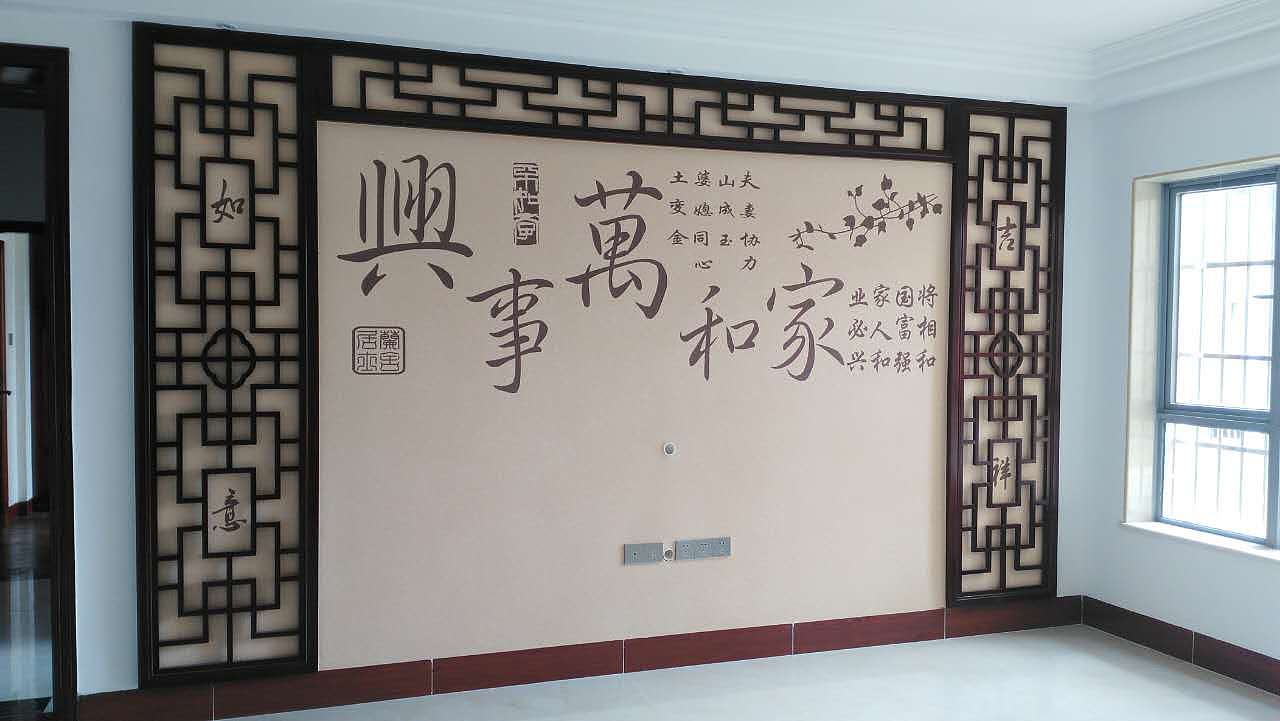 吉祥
将相和
国富强
家人和
业必兴
家和萬事興
夫妻协力
山成玉
婆媳同心
土变金
如意